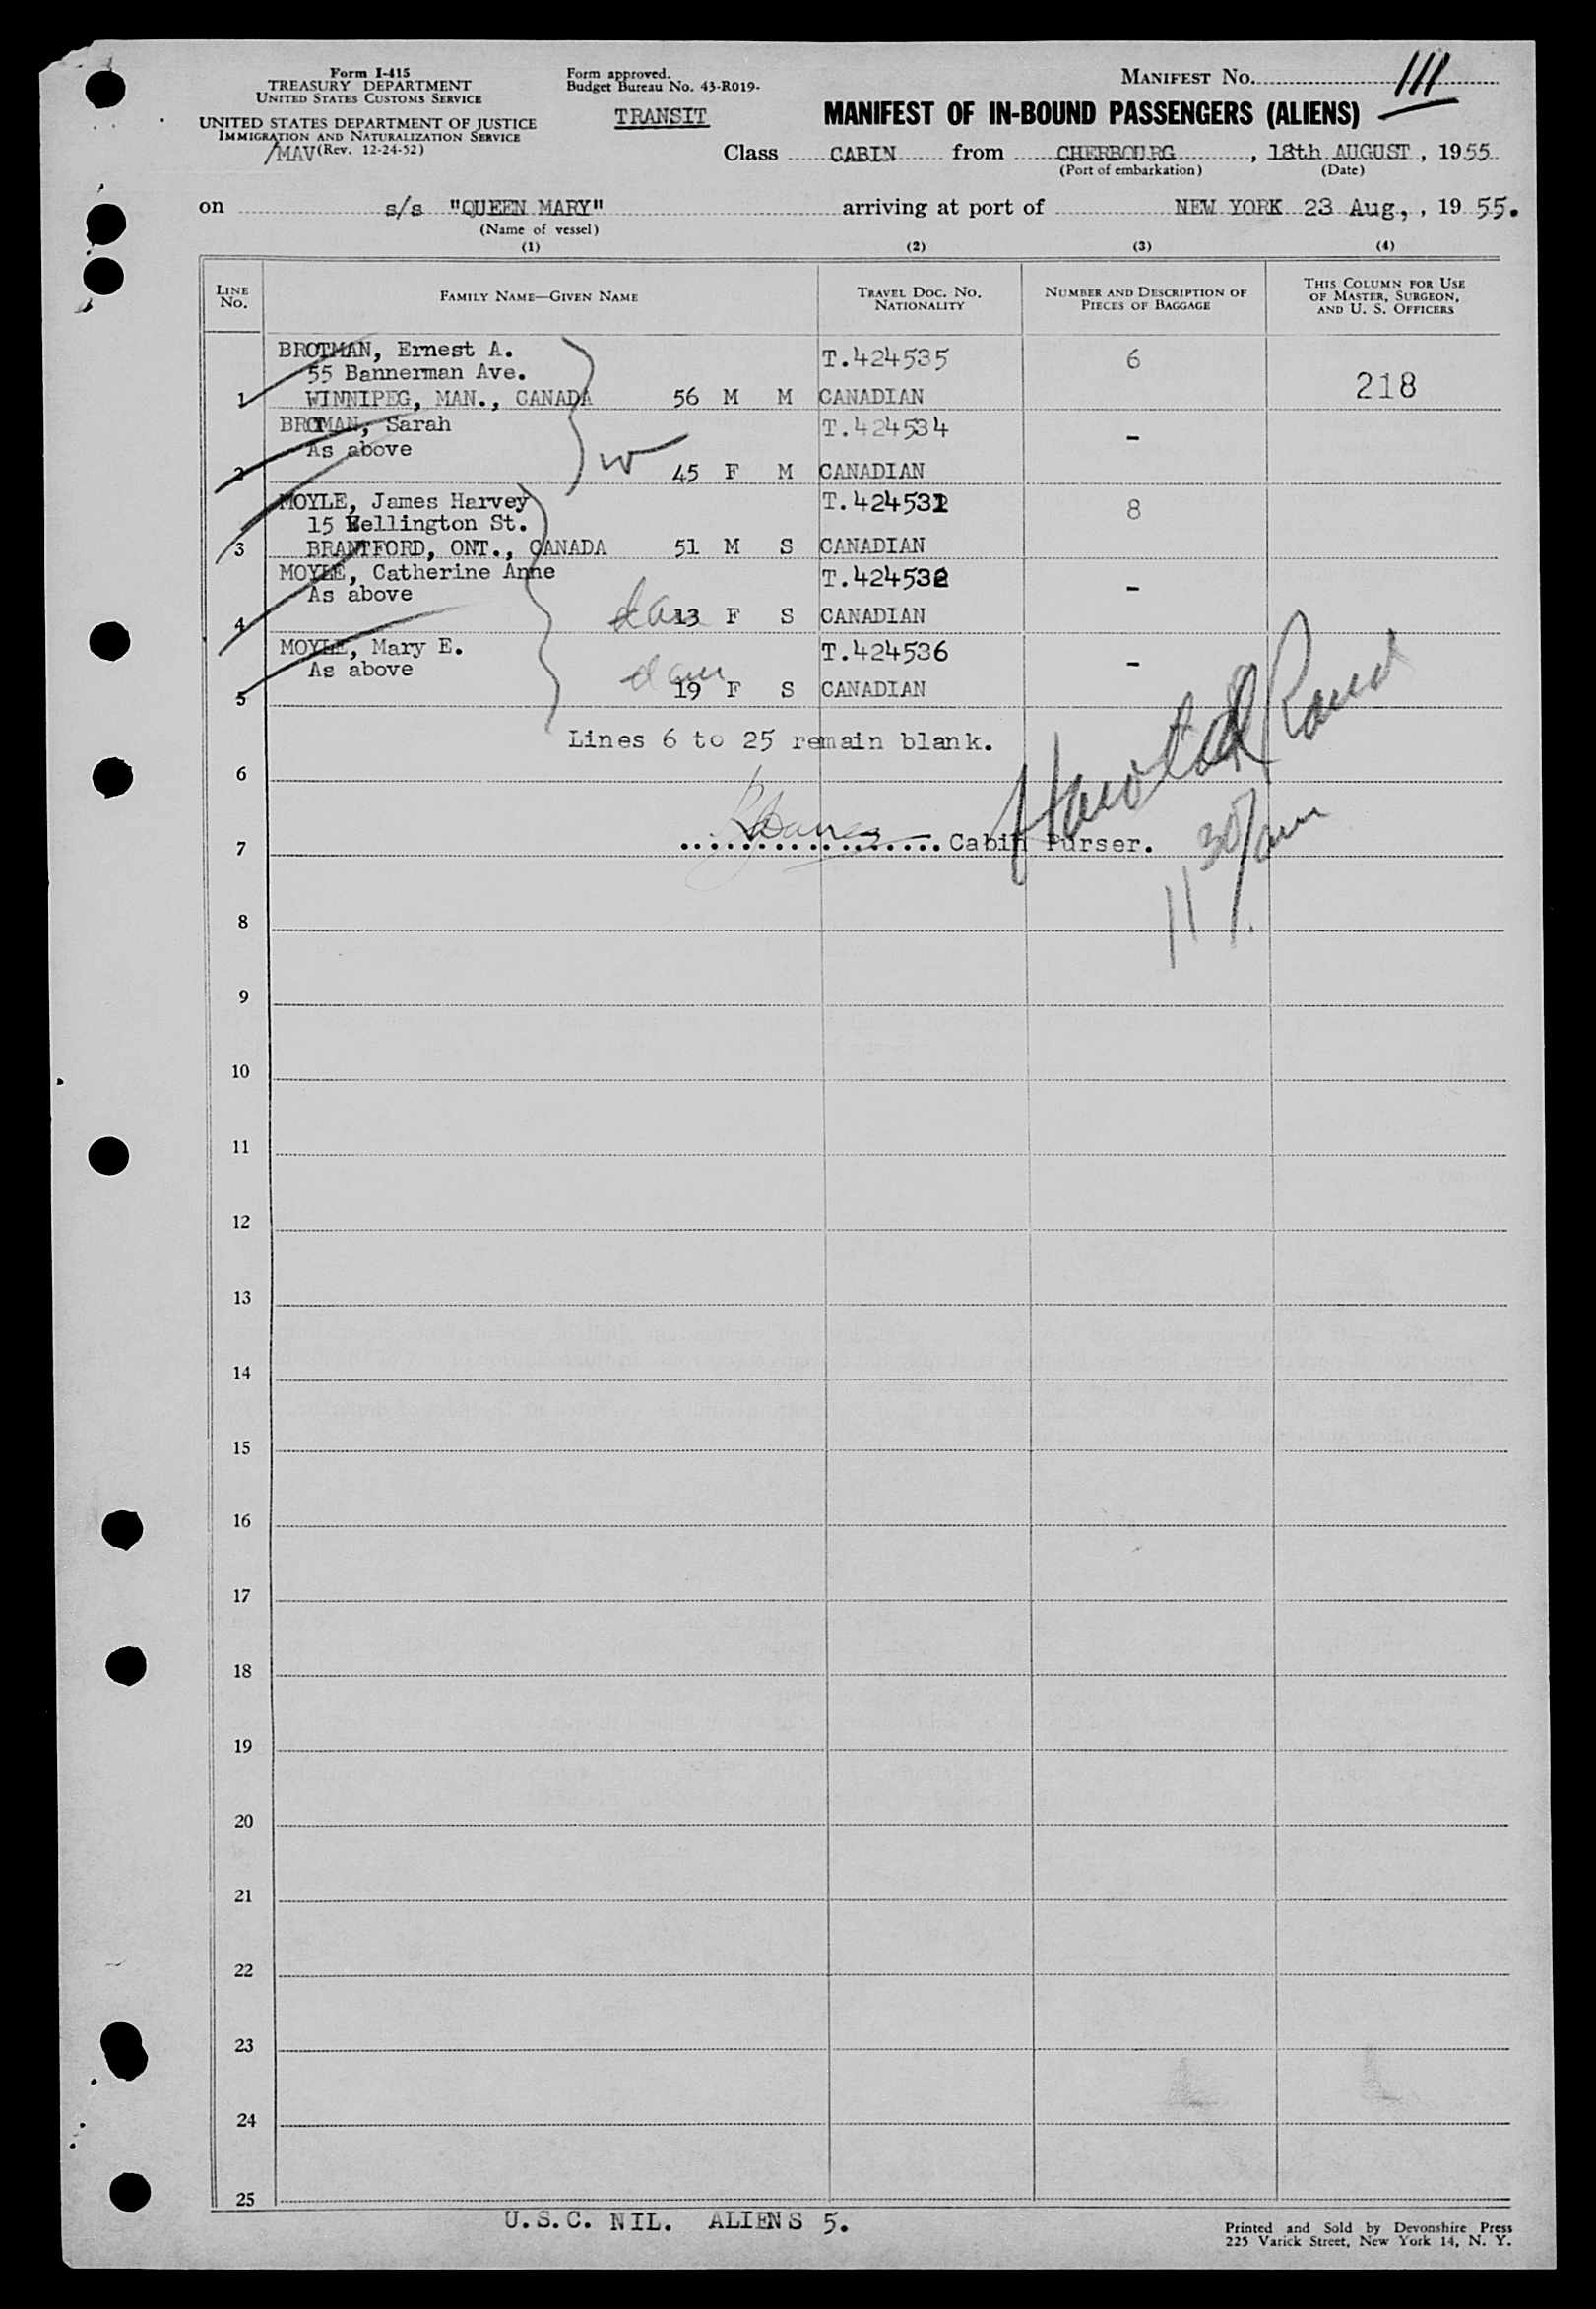 Form I-415
TREASURY DEPARTMENT
UNITED STATES CUSTOMS SERVICE
UNITED STATES DEPARTMENT OF JUSTICE
IMMIGRATION AND NATURALIZATION SERVICE
/MAV (Rev. 12-24-52)
Form approved.
Budget Bureau No. 43-R019-
TRANSIT
MANIFEST NO. 111
MANIFEST OF IN-BOUND PASSENGERS (ALIENS)
Class CABIN from CHERBOURG, 18th AUGUST, 1955
(Port of embarkation) (Date)
on s/s "QUEEN MARY" arriving at port of NEW YORK 23 Aug., 1955.
(Name of vessel)
(1) (2) (3) (4)
LINE NO. FAMILY NAME—GIVEN NAME TRAVEL DOC. NO. NATIONALITY NUMBER AND DESCRIPTION OF PIECES OF BAGGAGE THIS COLUMN FOR USE OF MASTER, SURGEON, AND U. S. OFFICERS
BROTMAN, Ernest A. T.424535 6
55 Bannerman Ave.
1 WINNIPEG, MAN., CANADA 56 M M CANADIAN 218
BROTMAN, Sarah T.424534 -
As above
2 45 F M CANADIAN
w
MOYLE, James Harvey T.424531 8
15 Wellington St.
3 BRANTFORD, ONT., CANADA 51 M S CANADIAN
MOYLE, Catherine Anne T.424532 -
As above
4 dau 13 F S CANADIAN
MOYLE, Mary E. T.424536 -
As above
5 dau 19 F S CANADIAN
Lines 6 to 25 remain blank.
6
Harold Rand
7 Cabin Purser.
11 30/am
8
9
10
11
12
13
14
15
16
17
18
19
20
21
22
23
24
25
U.S.C. NIL. ALIENS 5.
Printed and Sold by Devonshire Press
225 Varick Street, New York 14, N. Y.